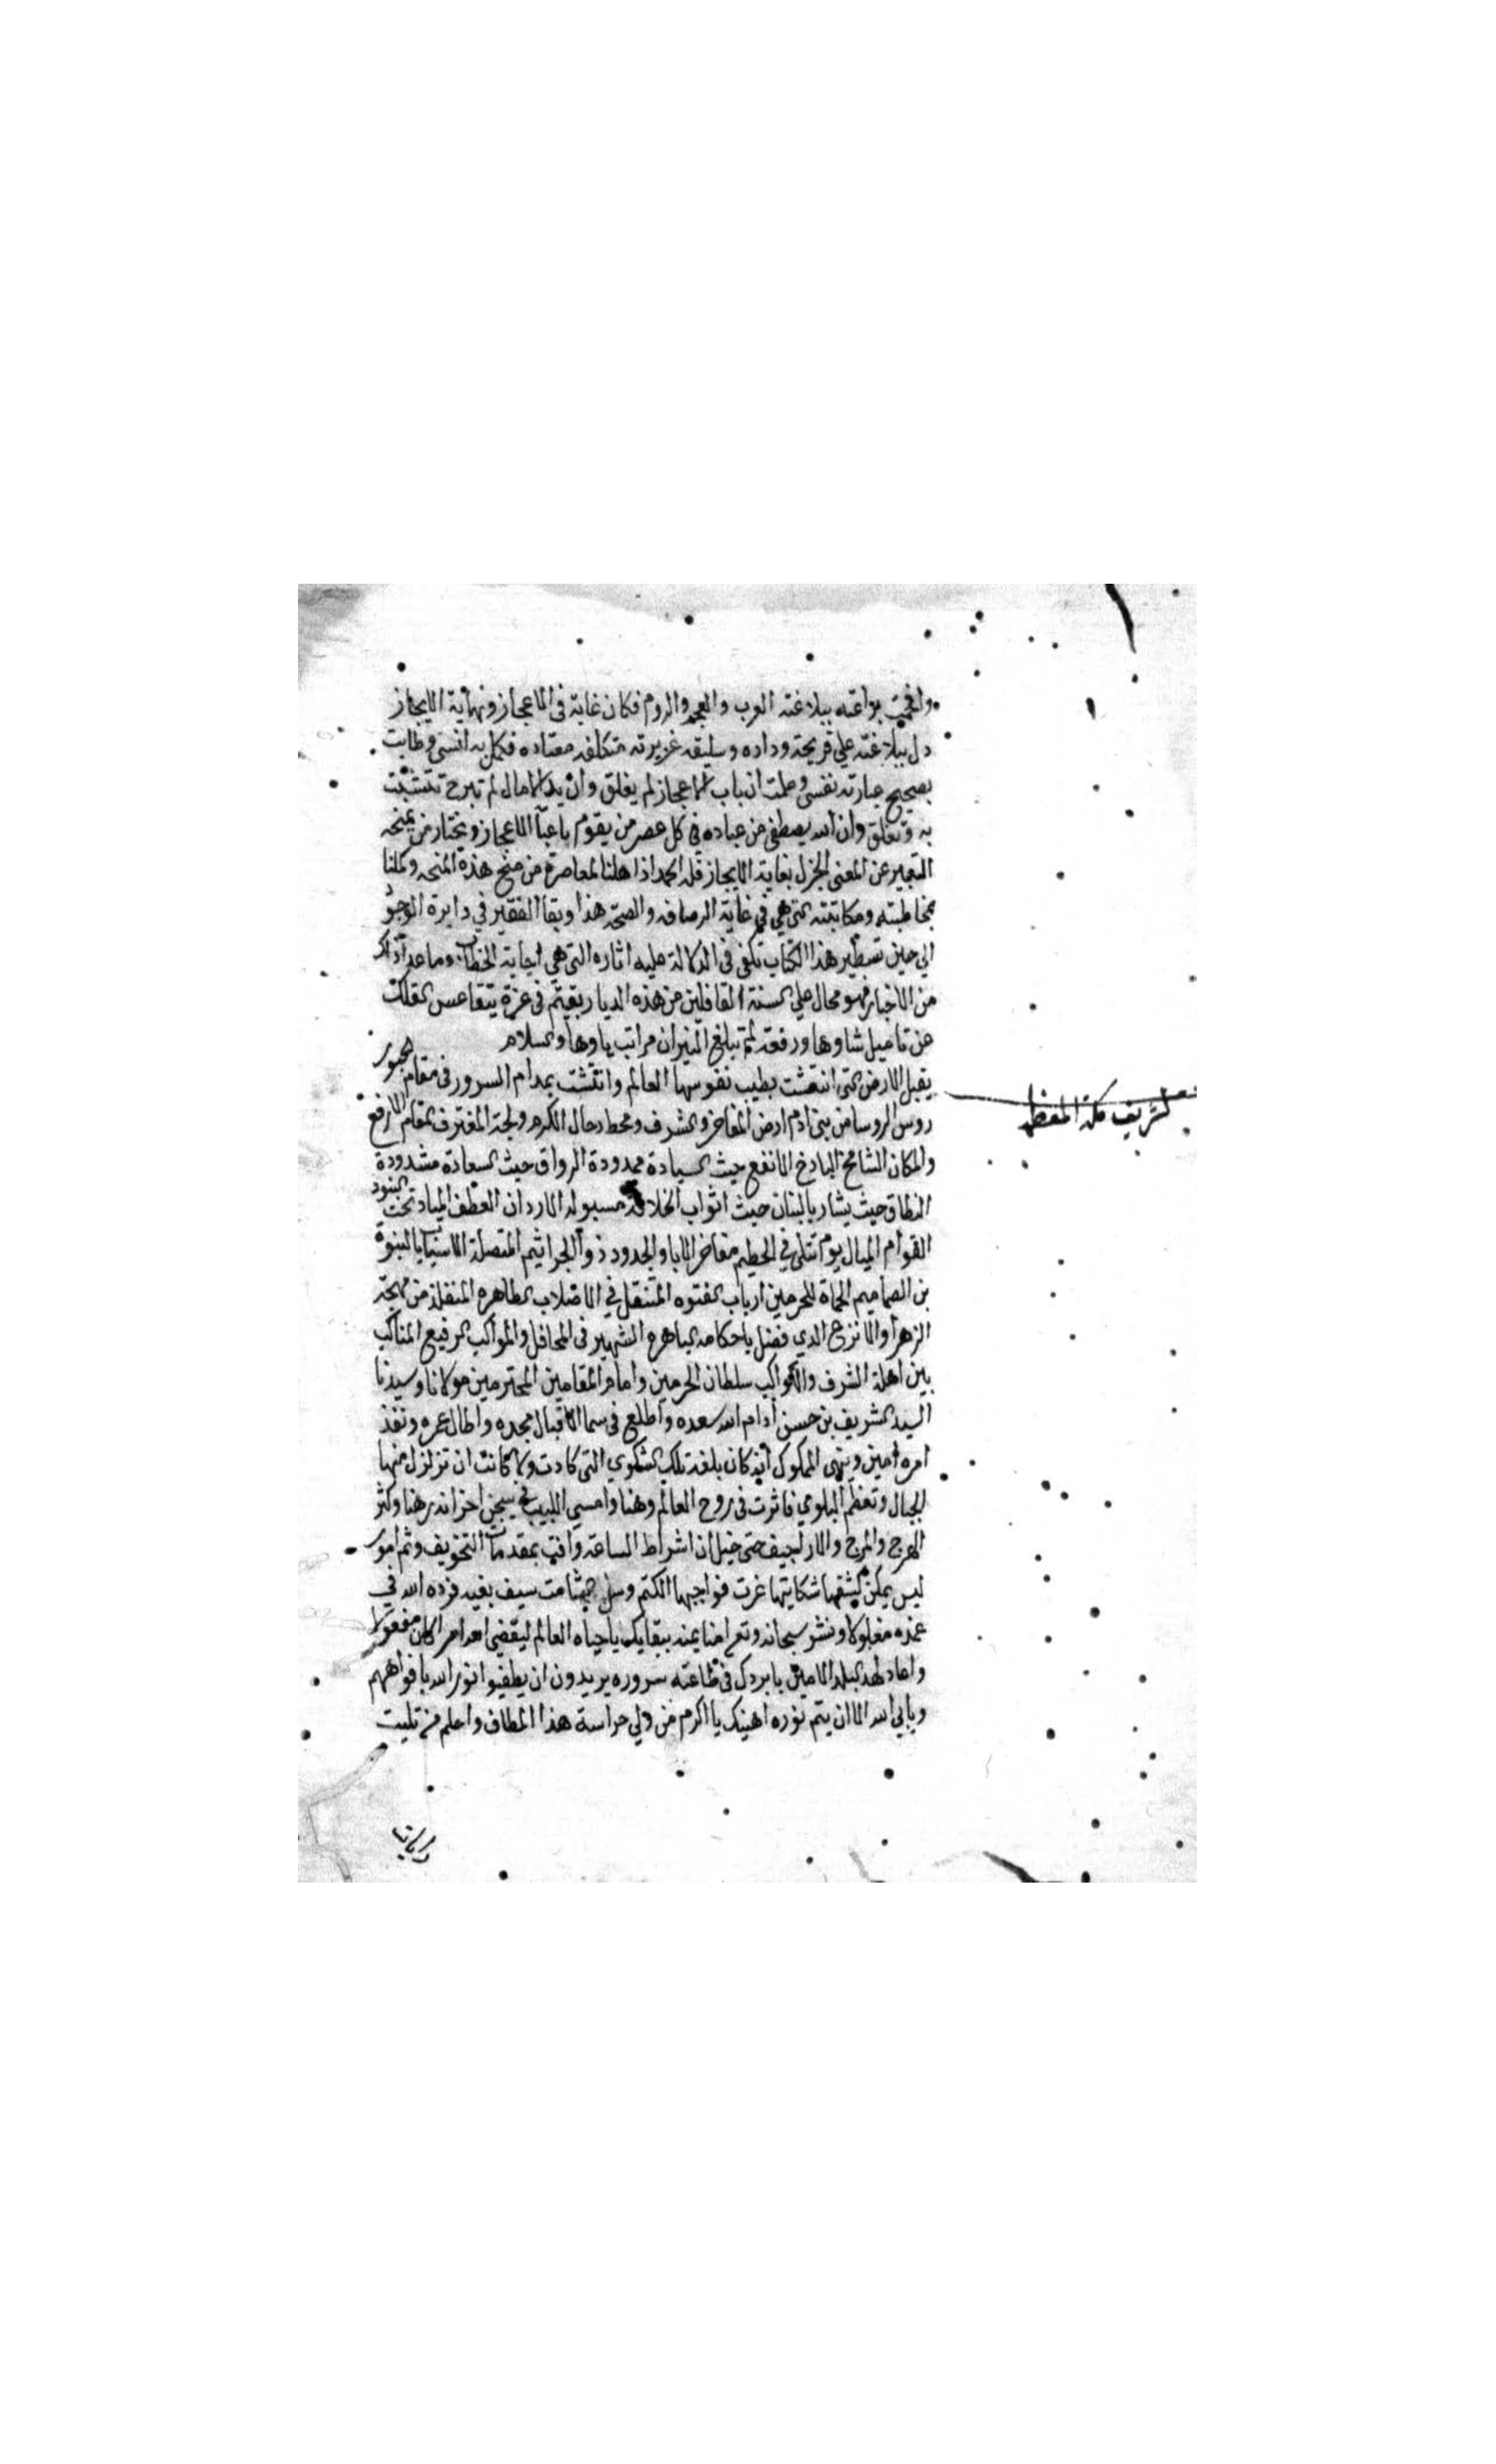 وافحمت براعته ببلاغته العرب والعجم والروم فكان غاية في الاعجاز ونهاية الايجاز
دل ببلاغته علي قريحة وداده وسليقه غزيرته متكلفه معتاده فكمل به انسي وطابت
بصحيح عبارته نفسي وعلمت ان باب الاعجاز لم يغلق وان يد الامال لم تبرح تتشبث
به وتعلق وان الله يصطفي من عباده في كل عصر من يقوم باعبآ الاعجاز ويختار من يمنحه
التعبير عن المعني الجزل بغاية الايجاز فلله الحمد اذ اهلنا لمعاصرة من منح هذه المنحه وكملنا
بمخاطبته ومكاتبته التي هي في غاية الرصافه والصحة هذا وبقآ الفقير في دايرة الوجود
الي حين تسطير هذا الكتاب تكفي في الدلالة عليه اثاره التي هي اجابة الخطاب وما عدا ذاك
من الاخبار فهو محال علي السنة القافلين من هذه الديار بقيتم في عزة يتقاعس الفلك
عن تاميل شاوها ورفعة لم تبلغ النيران مراتب باوها والسلام
يقبل الارض التي انتعشت بطيب نفوسها العالم وانتشت بمدام السرور في مقام الحبور
لشريف مكة المعظمه
روس الروسا من بني ادم ارض المفاخر والشرف ومحط رحال الكرم ولجة المغترف المقام الارفع
والمكان الشامخ الباذخ الانفع حيث السيادة ممدودة الرواق حيث السعادة مشدودة
النطاق حيث يشار بالبنان حيث اثواب الخلافة مسبولة الاردان العطف المياد تحت البنود
القوام الميال يوم تتلي في الحطيم مفاخر الابا والجدود ذو الجراثيم المتصلة الانساب بالنبوة
بن الصماميم الحماة للحرمين ارباب الفتوه المتنقل في الاصلاب الطاهره المنفلذ من مهجة
الزهرا والانزع الذي فضل باحكامه الباهره الشهير في المحافل والمواكب الرفيع المناكب
بين اهلة الشرف والكواكب سلطان الحرمين وامام المقامين المحترمين مولانا وسيدنا
السيد الشريف بن حسن ادام الله سعده واطلع في سما الاقبال مجده واطال عمره ونفذ
امره امين وينهي المملوك انه كان بلغه تلك الشكوي التي كادت ولا كانت ان تزلزل منها
الجبال وتعظم البلوي فاثرت في روح العالم وهنا وامسي اللبيب في سجن احزانه رهنا وكثر
الهرج والمرج والاراجيف حتي خيل ان اشراط الساعة وافت بمقدمات التخويف وثم امور
ليس يمكن كشفها شكايتها غرت فواجبها الكتم وسل شامت سيف بغيه فرده الله في
غمده مغلولا ونشر سبحانه وتع امنا يمنه ببقايك يا حياه العالم ليقضي الله امرا كان مفعولا
واعاد لهذ البلد الامين بابردك في طاعته سروره يريدون ان يطفيوا نور الله بافواههم
ويابي الله الا ان يتم نوره اهنيك يا اكرم من ولي حراسة هذا المطاف واعلم من تليت